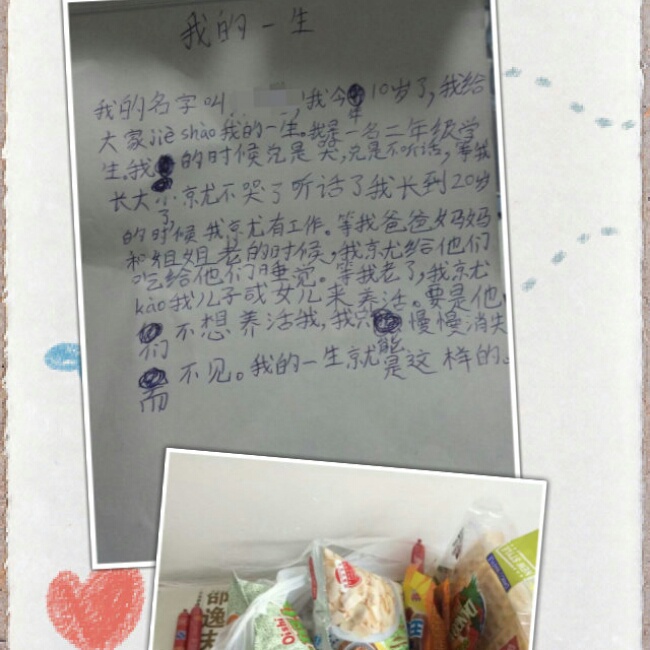 我的一生
我的名字叫 ,我今年10岁了,我给
大家jiè shào我的一生。我是一名二年级学
生,我小的时候总是哭,总是不听话,等我
长大了京尤不哭了听话了我长到20岁
的时候我京尤有工作。等我爸爸妈妈
和姐姐老的时候,我京尤给他们
吃给他们睡觉。等我老了,我京尤
kào我儿子或女儿来养活。要是他
们不想养活我,我只能慢慢消失
而不见。我的一生就是这样的。
邵逸夫